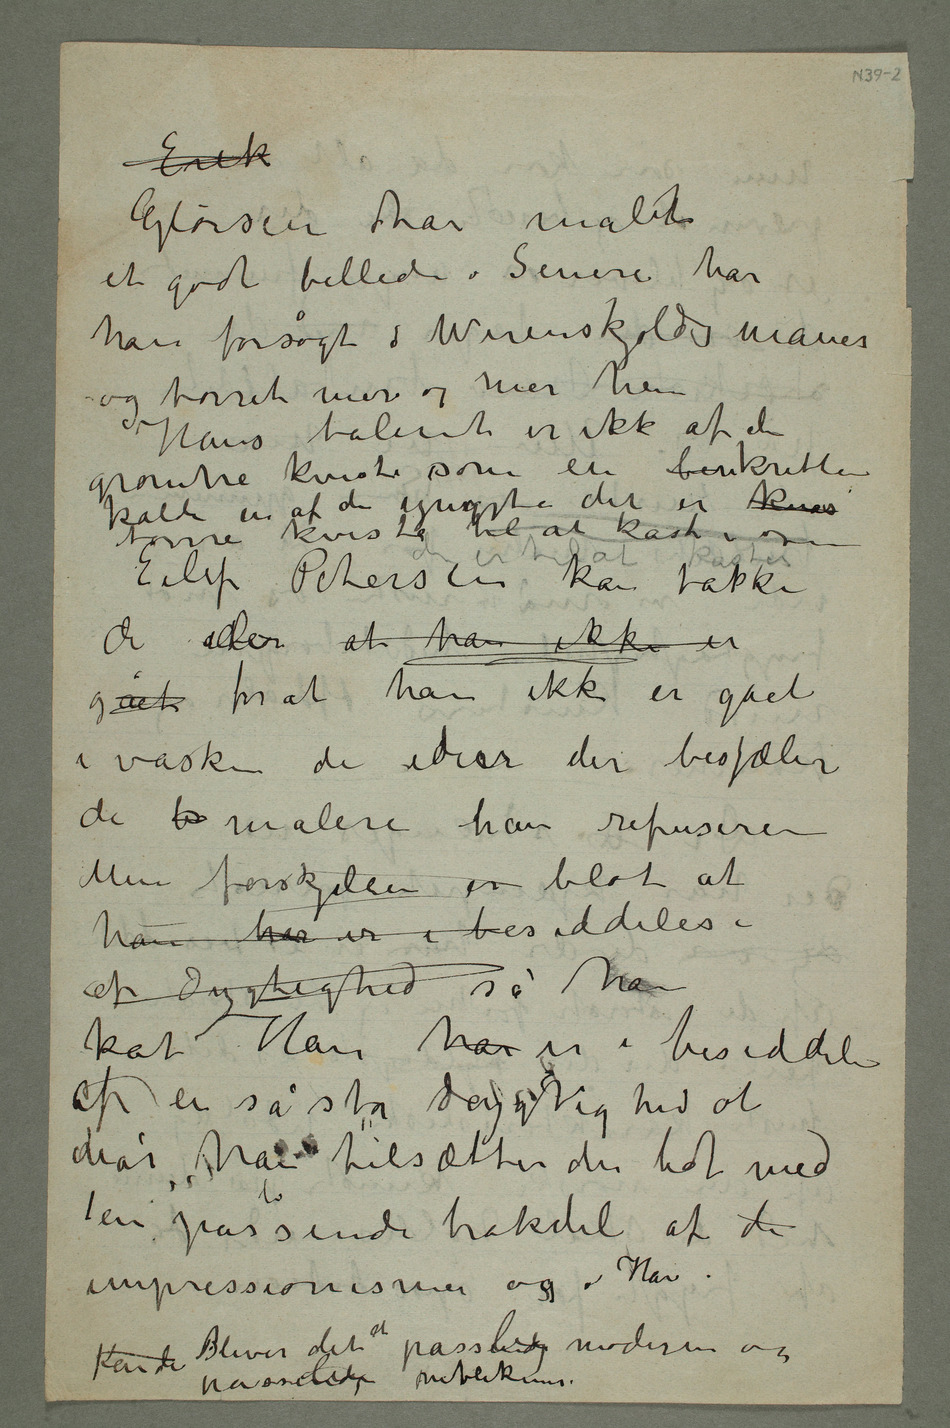 N39-2
Erik
Gløersen har malet
et godt billede. Senere har
han forsøgt i Werenskjolds maner
og tørret mer og mer hen
Hans talent er ikke af de
grønne kviste som en kritker
kaldte en af de yngste det er
tørre kviste til at kaste i
de er til at kaste
Eilif Petersen kan takke
de ideer at han ikke er
gået for at han ikke er gået
i vasken de ideer der besjæler
de malere han refuserer
Men forskjellen er blot at
han har er i besiddelse
af dygtighed så han
kat Han har er i besiddelse
af en så stor dygtighed at
når han tilsætter den lidt med
en passende brøkdel af de
impressionismen og Han
Kende Bliver det at passelig moderne og
passelig publikums.